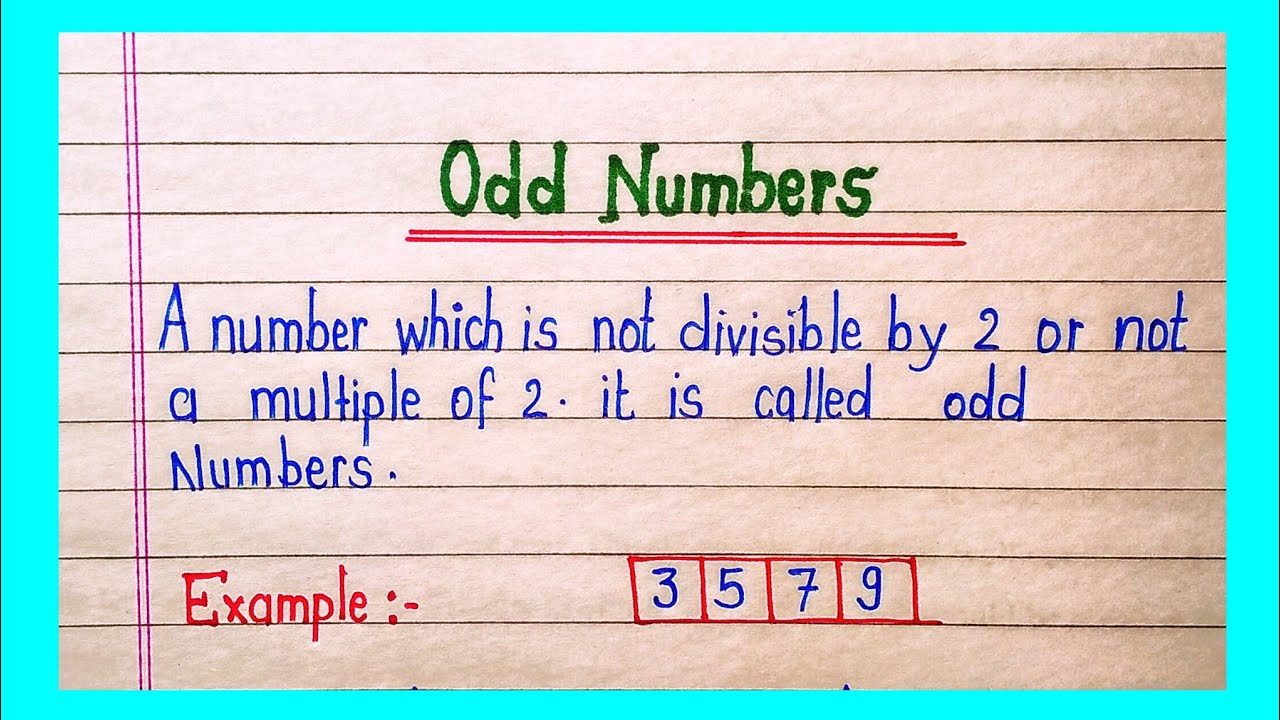 Odd Numbers
A number which is not divisible by 2 or not
a multiple of 2. it is called odd
Numbers.
Example :- 3 5 7 9